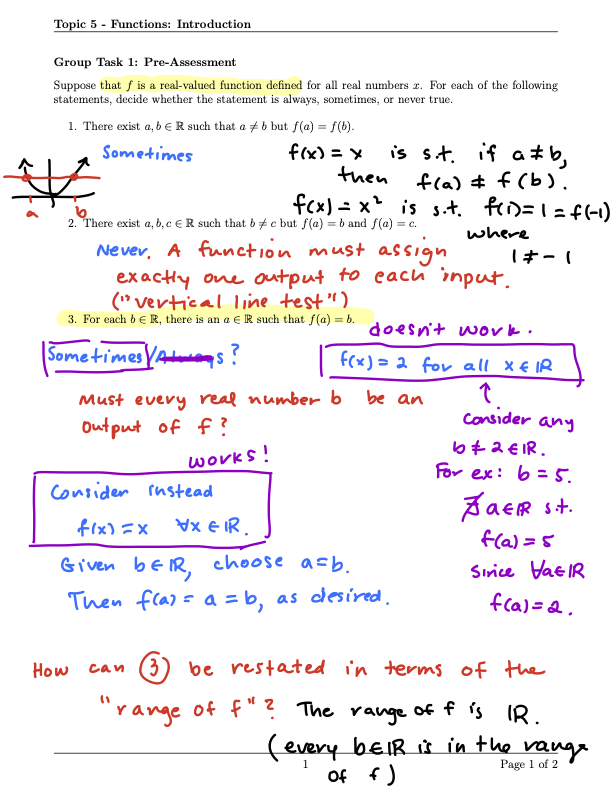 Topic 5 - Functions: Introduction
Group Task 1: Pre-Assessment
Suppose that f is a real-valued function defined for all real numbers x. For each of the following
statements, decide whether the statement is always, sometimes, or never true.
1. There exist a, b ∈ ℝ such that a ≠ b but f(a) = f(b).
Sometimes
a b
f(x) = x is s.t. if a ≠ b,
then f(a) ≠ f(b).
f(x) = x² is s.t. f(1) = 1 = f(-1)
where
1 ≠ -1
2. There exist a, b, c ∈ ℝ such that b ≠ c but f(a) = b and f(a) = c.
Never. A function must assign
exactly one output to each input.
("vertical line test")
3. For each b ∈ ℝ, there is an a ∈ ℝ such that f(a) = b.
Sometimes/Always?
doesn't work.
f(x) = 2 for all x ∈ ℝ
Must every real number b be an
output of f?
Consider any
b ≠ 2 ∈ ℝ.
For ex: b = 5.
∄ a ∈ ℝ s.t.
f(a) = 5
since ∀a ∈ ℝ
f(a) = 2.
works!
Consider instead
f(x) = x ∀x ∈ ℝ.
Given b ∈ ℝ, choose a = b.
Then f(a) = a = b, as desired.
How can ③ be restated in terms of the
"range of f"? The range of f is ℝ.
(every b ∈ ℝ is in the range
of f)
1
Page 1 of 2